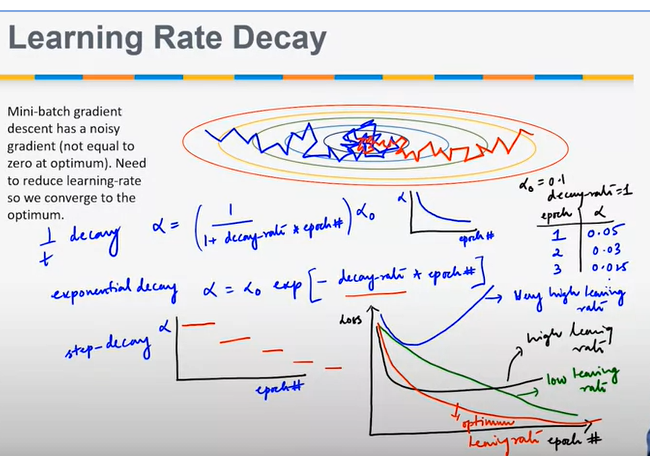 Learning Rate Decay
Mini-batch gradient
descent has a noisy
gradient (not equal to
zero at optimum). Need
to reduce learning-rate
so we converge to the
optimum.
α₀ = 0.1
decay-rate = 1
epoch α
1 0.05
2 0.03
3 0.025
1/t decay α = (1 / (1 + decay-rate * epoch #)) α₀
α
epoch #
exponential decay α = α₀ exp [- decay-rate * epoch #]
step-decay α
epoch #
Loss
Very high learning
rate
high learning
rate
low learning
rate
optimum
learning rate epoch #